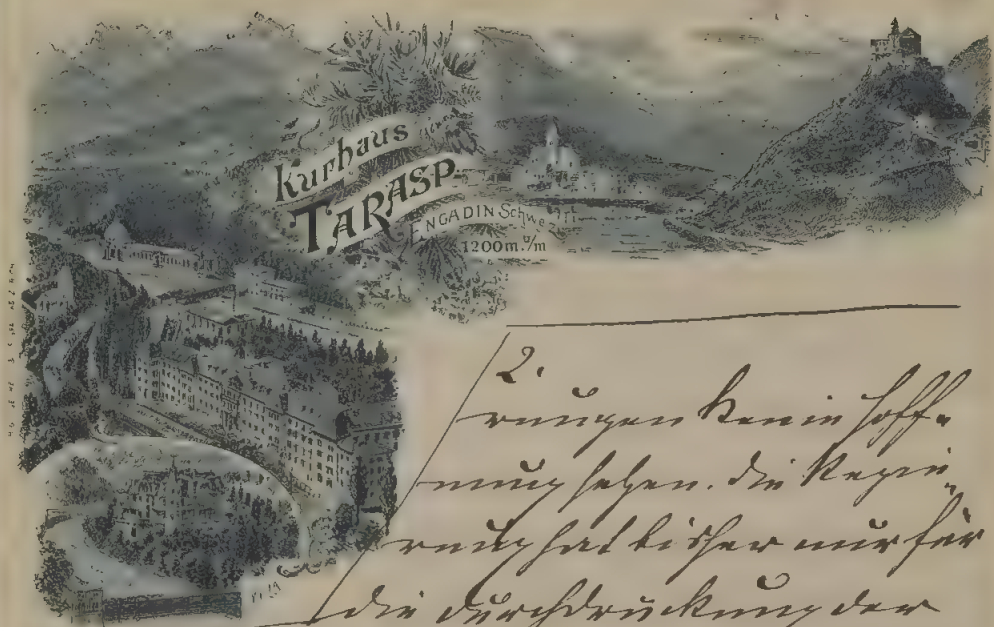 Kurhaus
TARASP.
ENGADIN Schweiz
1200 m. ü/m
2.
rungen keine Hoff-
nung sehen. Die Regie-
rung hat bisher nur für
die Durchdrückung der